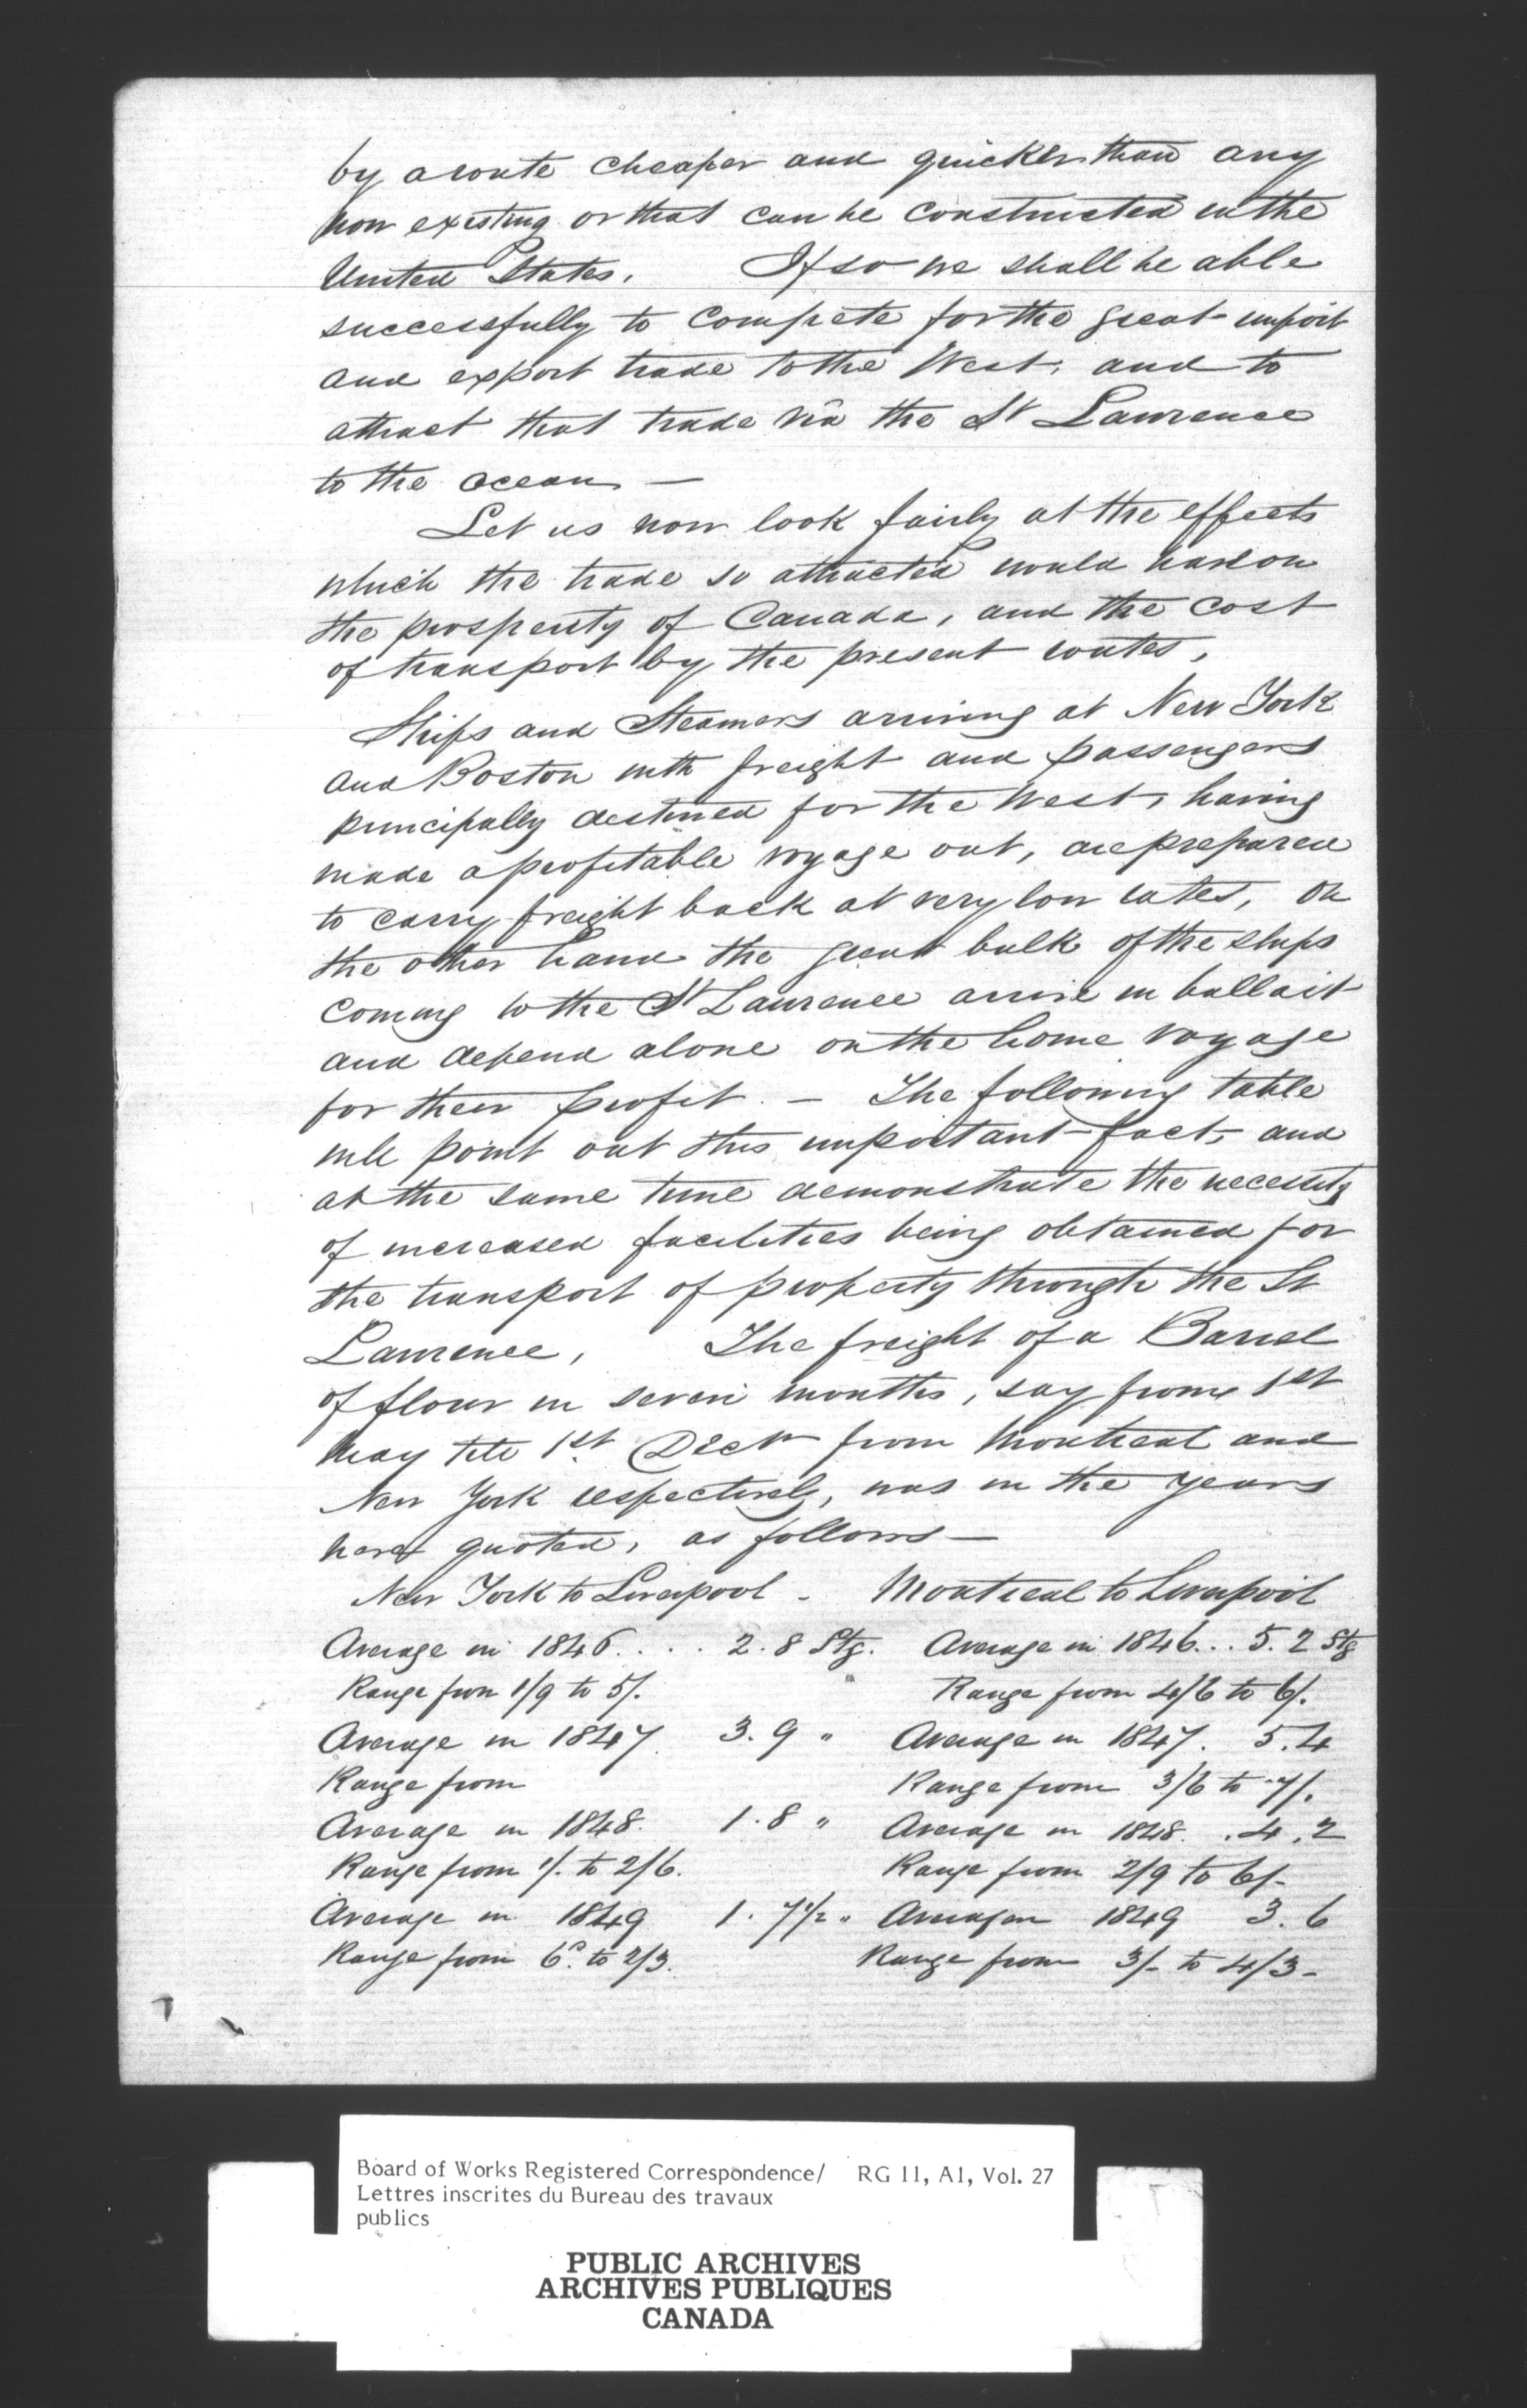 by a route cheaper and quicker than any
now existing or that can be constructed in the
United States. If so we shall be able
successfully to compete for the great import
and export trade to the West, and to
attract that trade via the St Lawrence
to the ocean —
Let us now look fairly at the effects
which the trade so attracted would have on
the prosperity of Canada, and the cost
of transport by the present routes,
Ships and Steamers arriving at New York
and Boston with freight and passengers
principally destined for the West, having
made a profitable voyage out, are prepared
to carry freight back at very low rates, On
the other hand the great bulk of the ships
coming to the St Lawrence arrive in ballast
and depend alone on the home voyage
for their profit. — The following table
will point out this important fact, and
at the same time demonstrate the necessity
of increased facilities being obtained for
the transport of property through the St
Lawrence, The freight of a Barrel
of flour in seven months, say from 1st
May till 1st Decr from Montreal and
New York respectively, was in the years
here quoted, as follows —
New York to Liverpool - Montreal to Liverpool
Average in 1846 . . . 2.8 Stg. Average in 1846 . . 5.2 Stg
Range from 1/9 to 5/. Range from 4/6 to 6/.
Average in 1847 3.9 " Average in 1847. 5.4
Range from Range from 3/6 to 7/.
Average in 1848. 1.8 " Average in 1848. .4.2
Range from 1/. to 2/6. Range from 2/9 to 6/-
Average in 1849 1.7½ " Average in 1849 3.6
Range from 6d. to 2/3. Range from 3/- to 4/3-
Board of Works Registered Correspondence/ RG 11, A1, Vol. 27
Lettres inscrites du Bureau des travaux
publics
PUBLIC ARCHIVES
ARCHIVES PUBLIQUES
CANADA